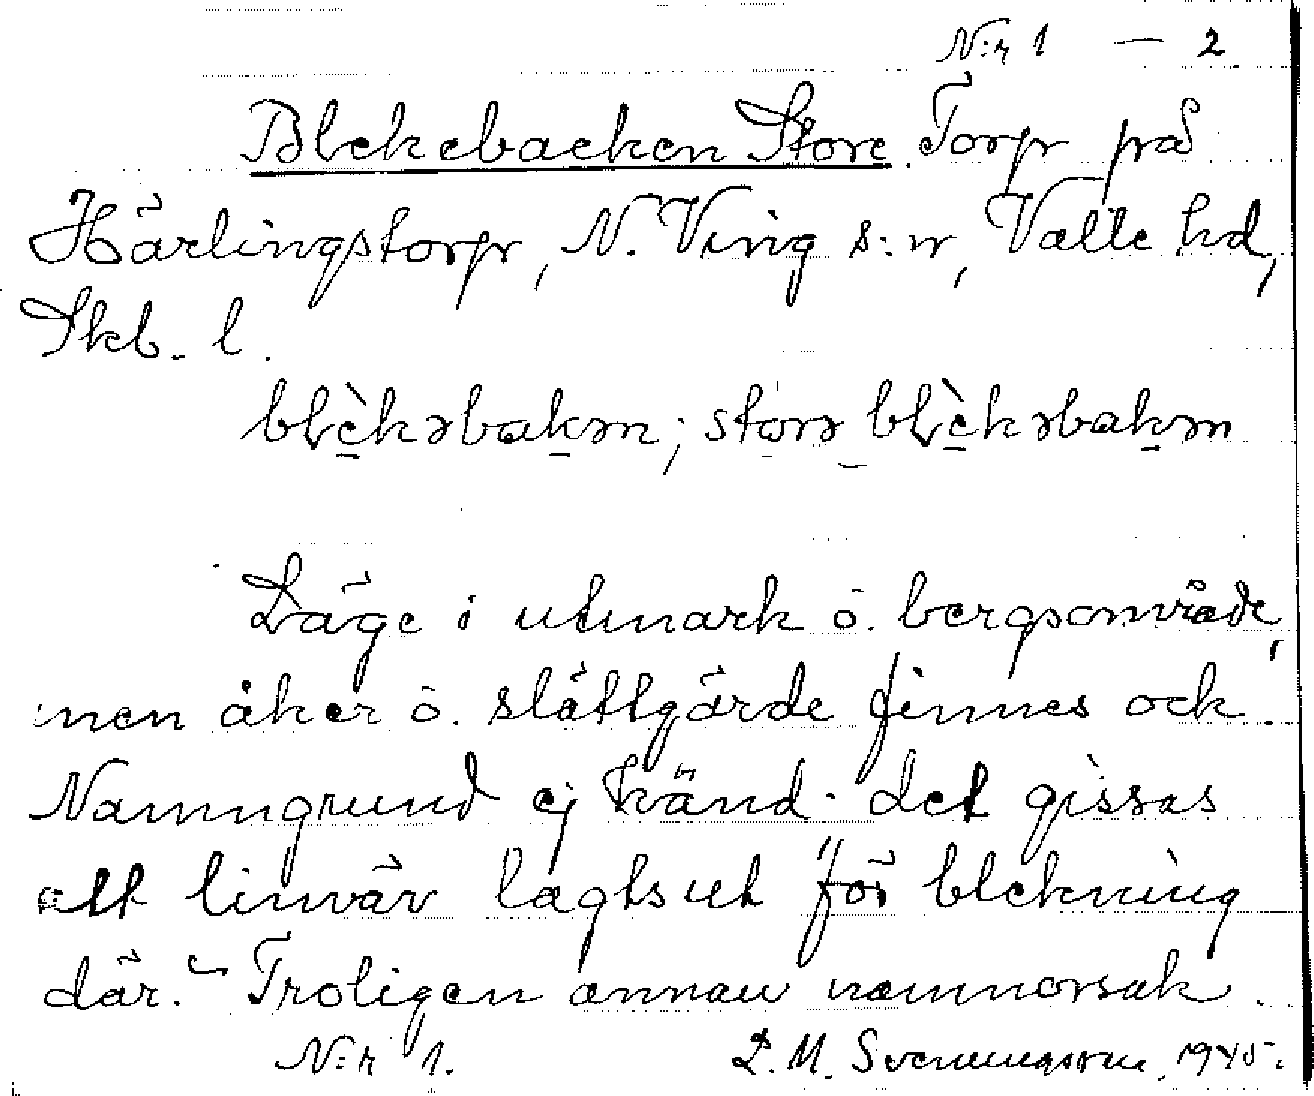 N:r 1 — 2
Blekebacken Store Torp på
Härlingstorp, N. Ving s:n, Valle hd,
Skb. l.
blèkəbakən; storə blèkəbakən
Läge i utmark o. bergsområde,
men åker o. slättgärde finnes ock.
Namngrund ej känd. det gissas
att linväv lagts ut "för blekning
där." Troligen annan namnorsak.
N:r 1. L. M. Svenungsson, 1945.